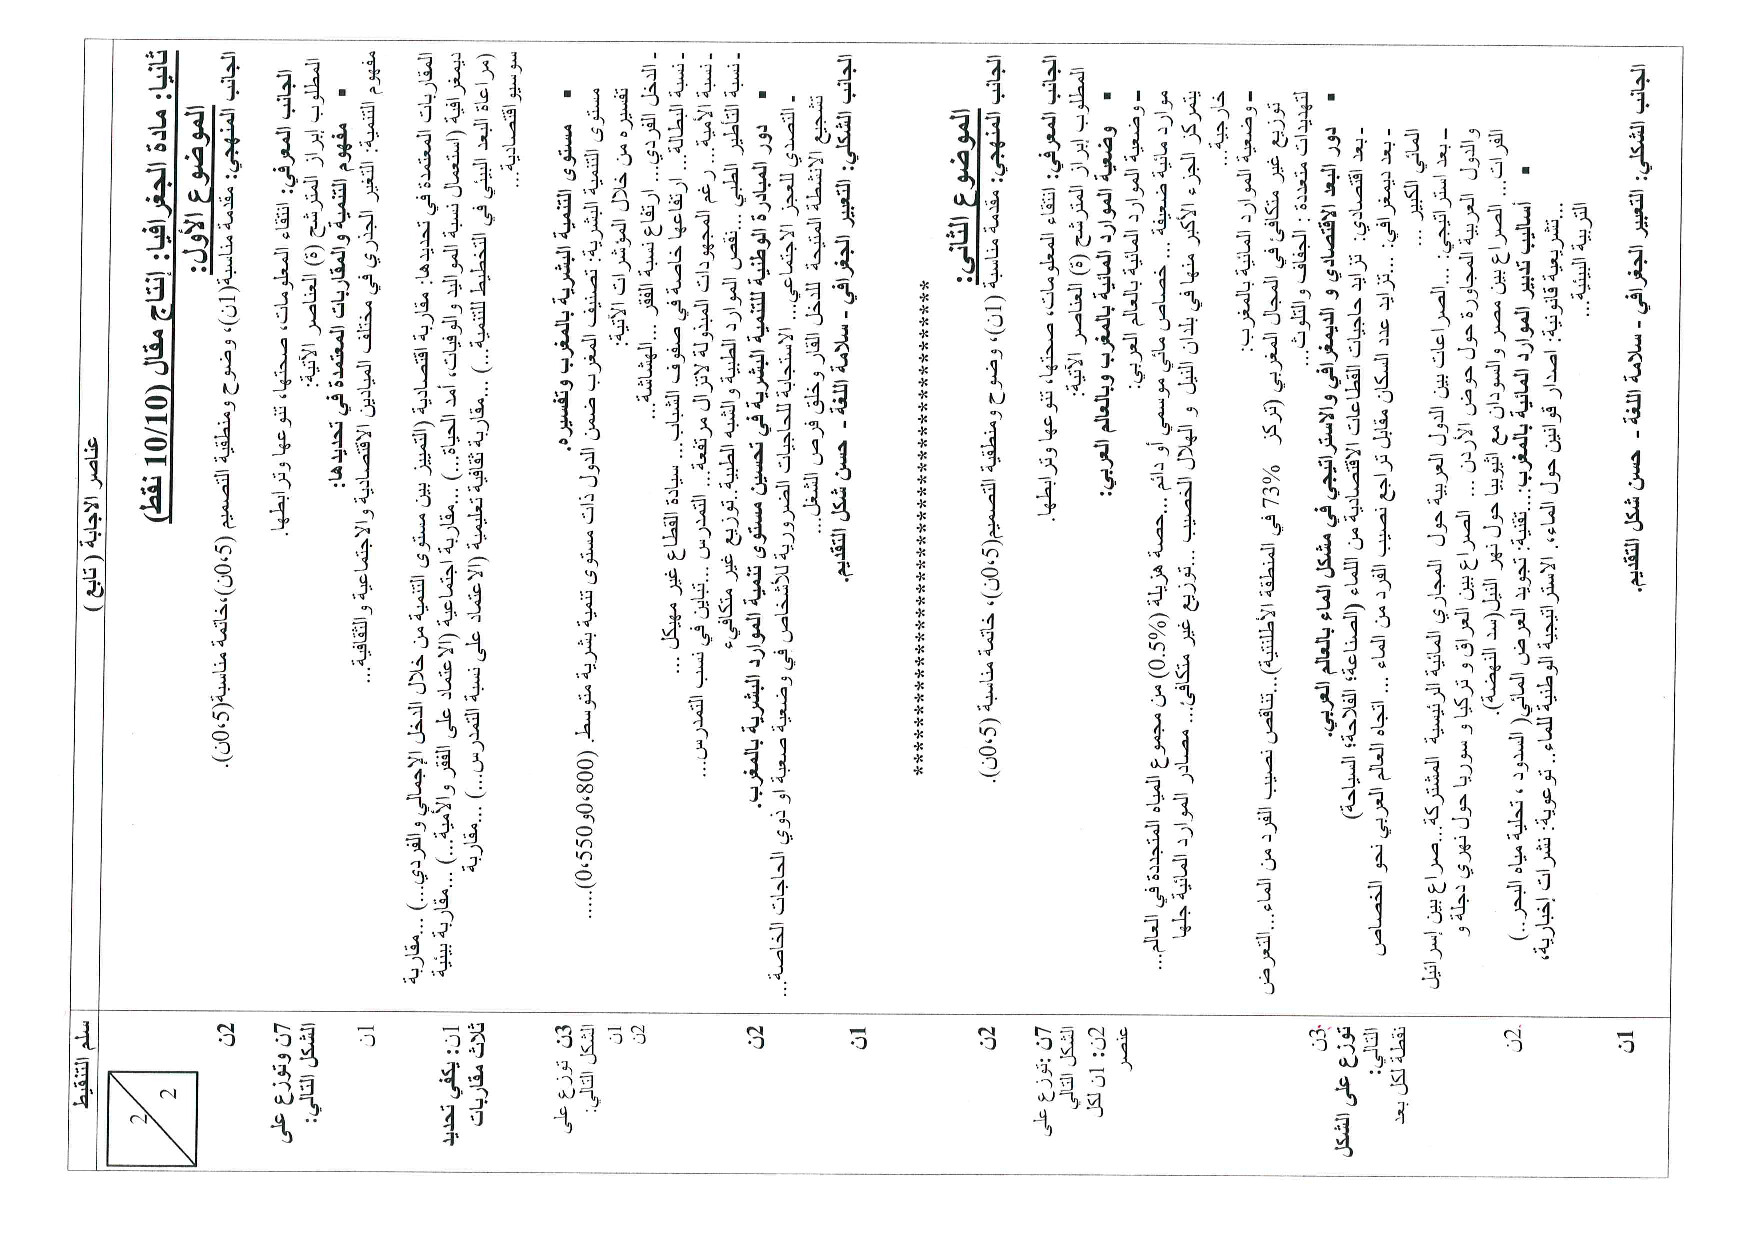 عناصر الاجابة ( تابع )
سلم التنقيط
2
2
ثانيا: مادة الجغرافيا: إنتاج مقال (10/10 نقط)
الموضوع الأول:
الجانب المنهجي: مقدمة مناسبة(1ن)، وضوح ومنطقية التصميم (0،5ن)،خاتمة مناسبة(0،5ن).
2ن
الجانب المعرفي: انتقاء المعلومات، صحتها، تنوعها وترابطها.
7ن وتوزع على
المطلوب إبراز المترشح (ة) العناصر الآتية:
الشكل التالي:
▪ مفهوم التنمية والمقاربات المعتمدة في تحديدها:
مفهوم التنمية: التغير الجذري في مختلف الميادين الاقتصادية والاجتماعية والثقافية...
1ن
المقاربات المعتمدة في تحديدها: مقاربة اقتصادية (التمييز بين مستوى التنمية من خلال الدخل الإجمالي والفردي...) ...مقاربة
ديمغرافية (استعمال نسبة المواليد والوفيات، أمد الحياة...) ...مقاربة اجتماعية (الاعتماد على الفقر والأمية...) ...مقاربة بيئية
(مراعاة البعد البيئي في التخطيط للتنمية...) ...مقاربة ثقافية تعليمية (الاعتماد على نسبة التمدرس...) ...مقاربة
سوسيواقتصادية...
1ن: يكفي تحديد
ثلاث مقاربات
▪ مستوى التنمية البشرية بالمغرب وتفسيره.
3ن توزع على
الشكل التالي:
مستوى التنمية البشرية: تصنيف المغرب ضمن الدول ذات مستوى تنمية بشرية متوسط. (0،800و0،550)......
1ن
تفسيره من خلال المؤشرات الآتية:
2ن
ـ الدخل الفردي... ارتفاع نسبة الفقر ...الهشاشة...
ـ نسبة البطالة... ارتفاعها خاصة في صفوف الشباب... سيادة القطاع غير مهيكل ...
ـ نسبة الأمية... رغم المجهودات المبذولة لاتزال مرتفعة... التمدرس ...تباين في نسب التمدرس...
ـ نسبة التأطير الطبي ...نقص الموارد الطبية والشبه الطبية..توزيع غير متكافىء
▪ دور المبادرة الوطنية للتنمية البشرية في تحسين مستوى تنمية الموارد البشرية بالمغرب.
2ن
ـ التصدي للعجز الاجتماعي... الاستجابة للحاجيات الضرورية للأشخاص في وضعية صعبة او ذوي الحاجات الخاصة...
تشجيع الانشطة المتيحة للدخل القار وخلق فرص الشغل...
الجانب الشكلي: التعبير الجغرافي ـ سلامة اللغة ـ حسن شكل التقديم.
1ن
*********************************
الموضوع الثاني:
الجانب المنهجي: مقدمة مناسبة (1ن)، وضوح ومنطقية التصميم(0،5ن)، خاتمة مناسبة (0،5ن).
2ن
الجانب المعرفي: انتقاء المعلومات، صحتها، تنوعها وترابطها.
7ن :توزع على
المطلوب إبراز المترشح (ة) العناصر الآتية:
الشكل التالي
▪ وضعية الموارد المائية بالمغرب وبالعالم العربي:
2ن: 1ن لكل
عنصر
ـ وضعية الموارد المائية بالعالم العربي:
موارد مائية ضعيفة ... خصاص مائي موسمي أو دائم ...حصة هزيلة (0.5%) من مجموع المياه المتجددة في العالم...
يتمركز الجزء الأكبر منها في بلدان النيل و الهلال الخصيب ...توزيع غير متكافئ... مصادر الموارد المائية جلها
خارجية...
ـ وضعية الموارد المائية بالمغرب:
توزيع غير متكافئ في المجال المغربي (تركز 73% في المنطقة الأطلنتية)...تناقص نصيب الفرد من الماء...التعرض
لتهديدات متعددة : الجفاف والتلوث...
▪ دور البعد الاقتصادي و الديمغرافي والاستراتيجي في مشكل الماء بالعالم العربي.
3ن
توزع على الشكل
التالي:
نقطة لكل بعد
ـ بعد اقتصادي: تزايد حاجيات القطاعات الاقتصادية من الماء (الصناعة؛ الفلاحة؛ السياحة)
ـ بعد ديمغرافي: ...تزايد عدد السكان مقابل تراجع نصيب الفرد من الماء ... اتجاه العالم العربي نحو الخصاص
المائي الكبير ...
ـ بعد استراتيجي: ...الصراعات بين الدول العربية حول المجاري المائية الرئيسية المشتركة...صراع بين إسرائيل
والدول العربية المجاورة حول حوض الأردن ... الصراع بين العراق و تركيا و سوريا حول نهري دجلة و
الفرات... الصراع بين مصر والسودان مع اثيوبيا حول نهر النيل(سد النهضة).
▪ أساليب تدبير الموارد المائية بالمغرب:...تقنية: تجويد العرض المائي( السدود ، تحلية مياه البحر..)
2ن
...تشريعية قانونية: اصدار قوانين حول الماء،. الاستراتيجية الوطنية للماء.. توعوية: نشرات إخبارية،
التربية البيئية...
الجانب الشكلي: التعبير الجغرافي ـ سلامة اللغة ـ حسن شكل التقديم.
1ن